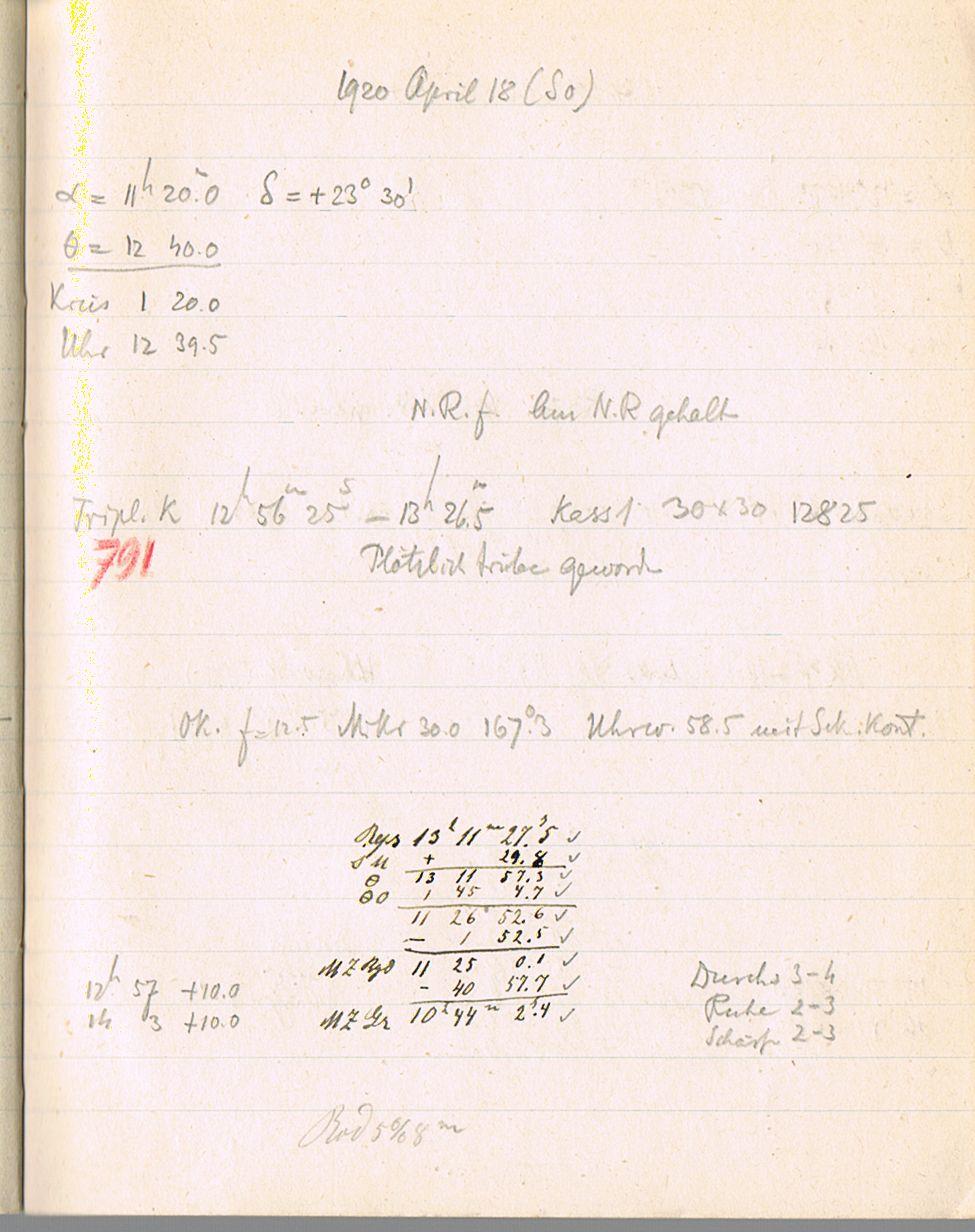 1920 April 18 (So)
α = 11ʰ 20ᵐ.0 δ = +23° 30'
θ = 12 40.0
Kreis 1 20.0
Uhr 12 39.5
N.R. f Am N.R gehalt
Tripl. K 12ʰ 56ᵐ 25ˢ – 13ʰ 26ᵐ.5 Kass 1 30×30 12825
791
Plötzlich trübe geword
Ok. f=12.5 Mikr 30.0 167°.3 Uhrw. 58.5 mit Sek. Kont.
13ʰ 11ᵐ 27ˢ.5 ✓
+ 29.8 ✓
θ 13 11 57.3 ✓
θ0 1 45 4.7 ✓
11 26 52.6 ✓
– 1 52.5 ✓
MZ Bgd 11 25 0.1 ✓
– 40 57.7 ✓
MZ Gr 10ʰ 44ᵐ 2ˢ.4 ✓
12ʰ 57 +10.0
14 3 +10.0
Durchs 3-4
Ruhe 2-3
Schärfe 2-3